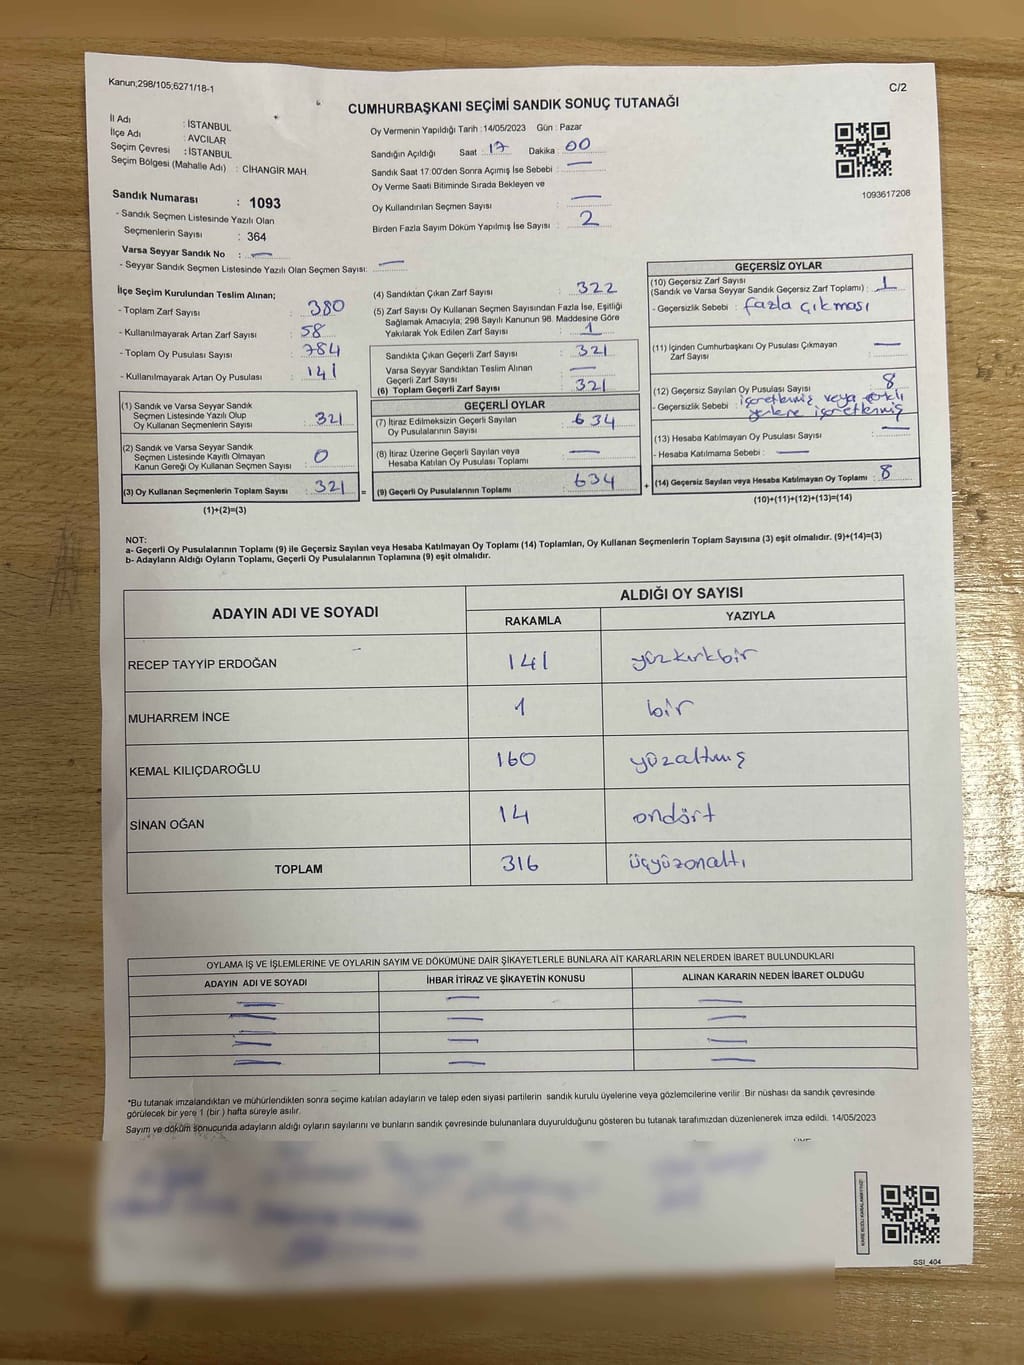 Kanun;298/105;6271/18-1
C/2
CUMHURBAŞKANI SEÇİMİ SANDIK SONUÇ TUTANAĞI
İl Adı : İSTANBUL
İlçe Adı : AVCILAR
Seçim Çevresi : İSTANBUL
Seçim Bölgesi (Mahalle Adı) : CİHANGİR MAH.
Sandık Numarası : 1093
- Sandık Seçmen Listesinde Yazılı Olan
Seçmenlerin Sayısı : 364
Varsa Seyyar Sandık No : —
- Seyyar Sandık Seçmen Listesinde Yazılı Olan Seçmen Sayısı: —
Oy Vermenin Yapıldığı Tarih : 14/05/2023 Gün : Pazar
Sandığın Açıldığı Saat : 17 Dakika : 00
Sandık Saat 17:00'den Sonra Açımış İse Sebebi : —
Oy Verme Saati Bitiminde Sırada Bekleyen ve
Oy Kullandırılan Seçmen Sayısı : —
Birden Fazla Sayım Döküm Yapılmış İse Sayısı : 2
1093617208
İlçe Seçim Kurulundan Teslim Alınan;
- Toplam Zarf Sayısı : 380
- Kullanılmayarak Artan Zarf Sayısı : 58
- Toplam Oy Pusulası Sayısı : 784
- Kullanılmayarak Artan Oy Pusulası : 141
(1) Sandık ve Varsa Seyyar Sandık
Seçmen Listesinde Yazılı Olup
Oy Kullanan Seçmenlerin Sayısı : 321
(2) Sandık ve Varsa Seyyar Sandık
Seçmen Listesinde Kayıtlı Olmayan
Kanun Gereği Oy Kullanan Seçmen Sayısı : 0
(3) Oy Kullanan Seçmenlerin Toplam Sayısı : 321 =
(1)+(2)=(3)
(4) Sandıktan Çıkan Zarf Sayısı : 322
(5) Zarf Sayısı Oy Kullanan Seçmen Sayısından Fazla İse, Eşitliği
Sağlamak Amacıyla; 298 Sayılı Kanunun 98. Maddesine Göre
Yakılarak Yok Edilen Zarf Sayısı : 1
Sandıkta Çıkan Geçerli Zarf Sayısı : 321
Varsa Seyyar Sandıktan Teslim Alınan
Geçerli Zarf Sayısı : —
(6) Toplam Geçerli Zarf Sayısı : 321
GEÇERLİ OYLAR
(7) İtiraz Edilmeksizin Geçerli Sayılan
Oy Pusulalarının Sayısı : 634
(8) İtiraz Üzerine Geçerli Sayılan veya
Hesaba Katılan Oy Pusulası Toplamı : —
(9) Geçerli Oy Pusulalarının Toplamı : 634 +
GEÇERSİZ OYLAR
(10) Geçersiz Zarf Sayısı
(Sandık ve Varsa Seyyar Sandık Geçersiz Zarf Toplamı) : 1
- Geçersizlik Sebebi : fazla çıkması
(11) İçinden Cumhurbaşkanı Oy Pusulası Çıkmayan
Zarf Sayısı : —
(12) Geçersiz Sayılan Oy Pusulası Sayısı : 8
- Geçersizlik Sebebi : işaretlemiş veya farklı
yerlere işaretlemiş
(13) Hesaba Katılmayan Oy Pusulası Sayısı : —
- Hesaba Katılmama Sebebi : —
(14) Geçersiz Sayılan veya Hesaba Katılmayan Oy Toplamı : 8
(10)+(11)+(12)+(13)=(14)
NOT:
a- Geçerli Oy Pusulalarının Toplamı (9) ile Geçersiz Sayılan veya Hesaba Katılmayan Oy Toplamı (14) Toplamları, Oy Kullanan Seçmenlerin Toplam Sayısına (3) eşit olmalıdır. (9)+(14)=(3)
b- Adayların Aldığı Oyların Toplamı, Geçerli Oy Pusulalarının Toplamına (9) eşit olmalıdır.
ADAYIN ADI VE SOYADI ALDIĞI OY SAYISI
RAKAMLA YAZIYLA
RECEP TAYYİP ERDOĞAN 141 yüzkırkbir
MUHARREM İNCE 1 bir
KEMAL KILIÇDAROĞLU 160 yüzaltmış
SİNAN OĞAN 14 ondört
TOPLAM 316 üçyüzonaltı
OYLAMA İŞ VE İŞLEMLERİNE VE OYLARIN SAYIM VE DÖKÜMÜNE DAİR ŞİKAYETLERLE BUNLARA AİT KARARLARIN NELERDEN İBARET BULUNDUKLARI
ADAYIN ADI VE SOYADI İHBAR İTİRAZ VE ŞİKAYETİN KONUSU ALINAN KARARIN NEDEN İBARET OLDUĞU
— — —
— — —
— — —
— — —
*Bu tutanak imzalandıktan ve mühürlendikten sonra seçime katılan adayların ve talep eden siyasi partilerin sandık kurulu üyelerine veya gözlemcilerine verilir. Bir nüshası da sandık çevresinde
görülecek bir yere 1 (bir ) hafta süreyle asılır.
Sayım ve döküm sonucunda adayların aldığı oyların sayılarını ve bunların sandık çevresinde bulunanlara duyurulduğunu gösteren bu tutanak tarafımızdan düzenlenerek imza edildi. 14/05/2023
SSI_404